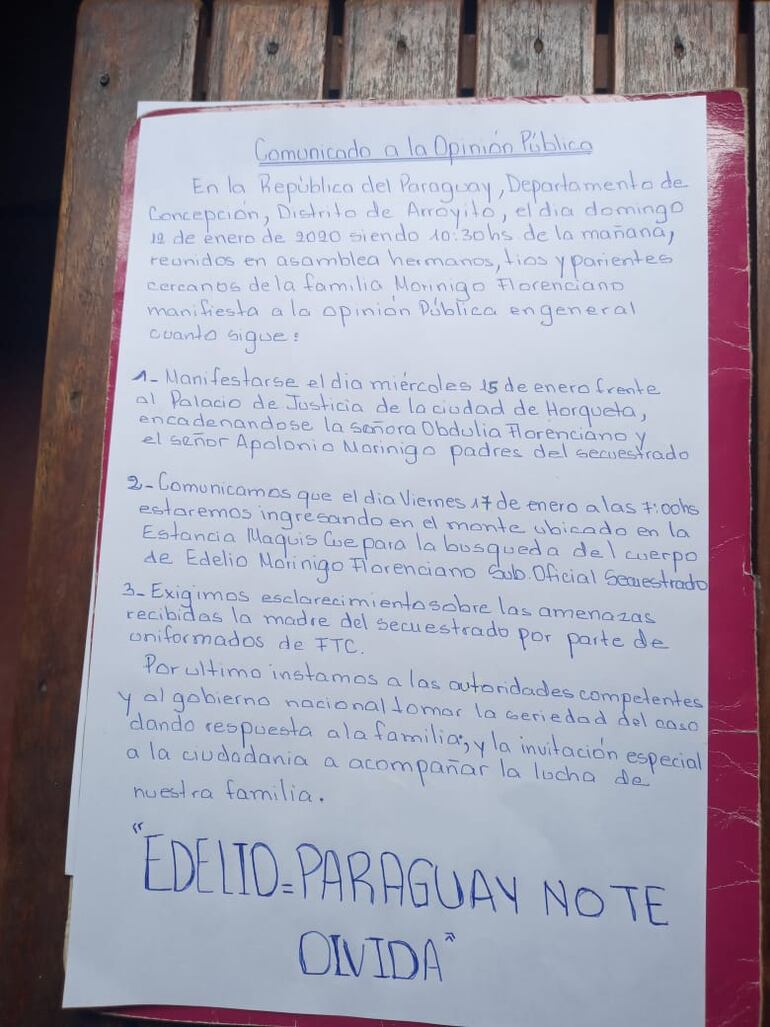 Comunicado a la Opinión Pública
En la República del Paraguay, Departamento de
Concepción, Distrito de Arroyito, el dia domingo
12 de enero de 2020 siendo 10:30hs de la mañana,
reunidos en asamblea hermanos, tios y parientes
cercanos de la familia Morinigo Florenciano
manifiesta a la opinión Pública en general
cuanto sigue:
1- Manifestarse el dia miércoles 15 de enero frente
al Palacio de Justicia de la ciudad de Horqueta,
encadenandose la señora Obdulia Florenciano y
el señor Apolonio Morinigo padres del secuestrado
2- Comunicamos que el dia Viernes 17 de enero a las 7:00hs
estaremos ingresando en el monte ubicado en la
Estancia Maquis Cue para la busqueda del cuerpo
de Edelio Morinigo Florenciano Sub. Oficial Secuestrado
3- Exigimos esclarecimiento sobre las amenazas
recibidas la madre del secuestrado por parte de
uniformados de FTC.
Por ultimo instamos a las autoridades competentes
y al gobierno nacional tomar la seriedad del caso
dando respuesta a la familia, y la invitación especial
a la ciudadania a acompañar la lucha de
nuestra familia.
"EDELIO=PARAGUAY NO TE
OLVIDA"